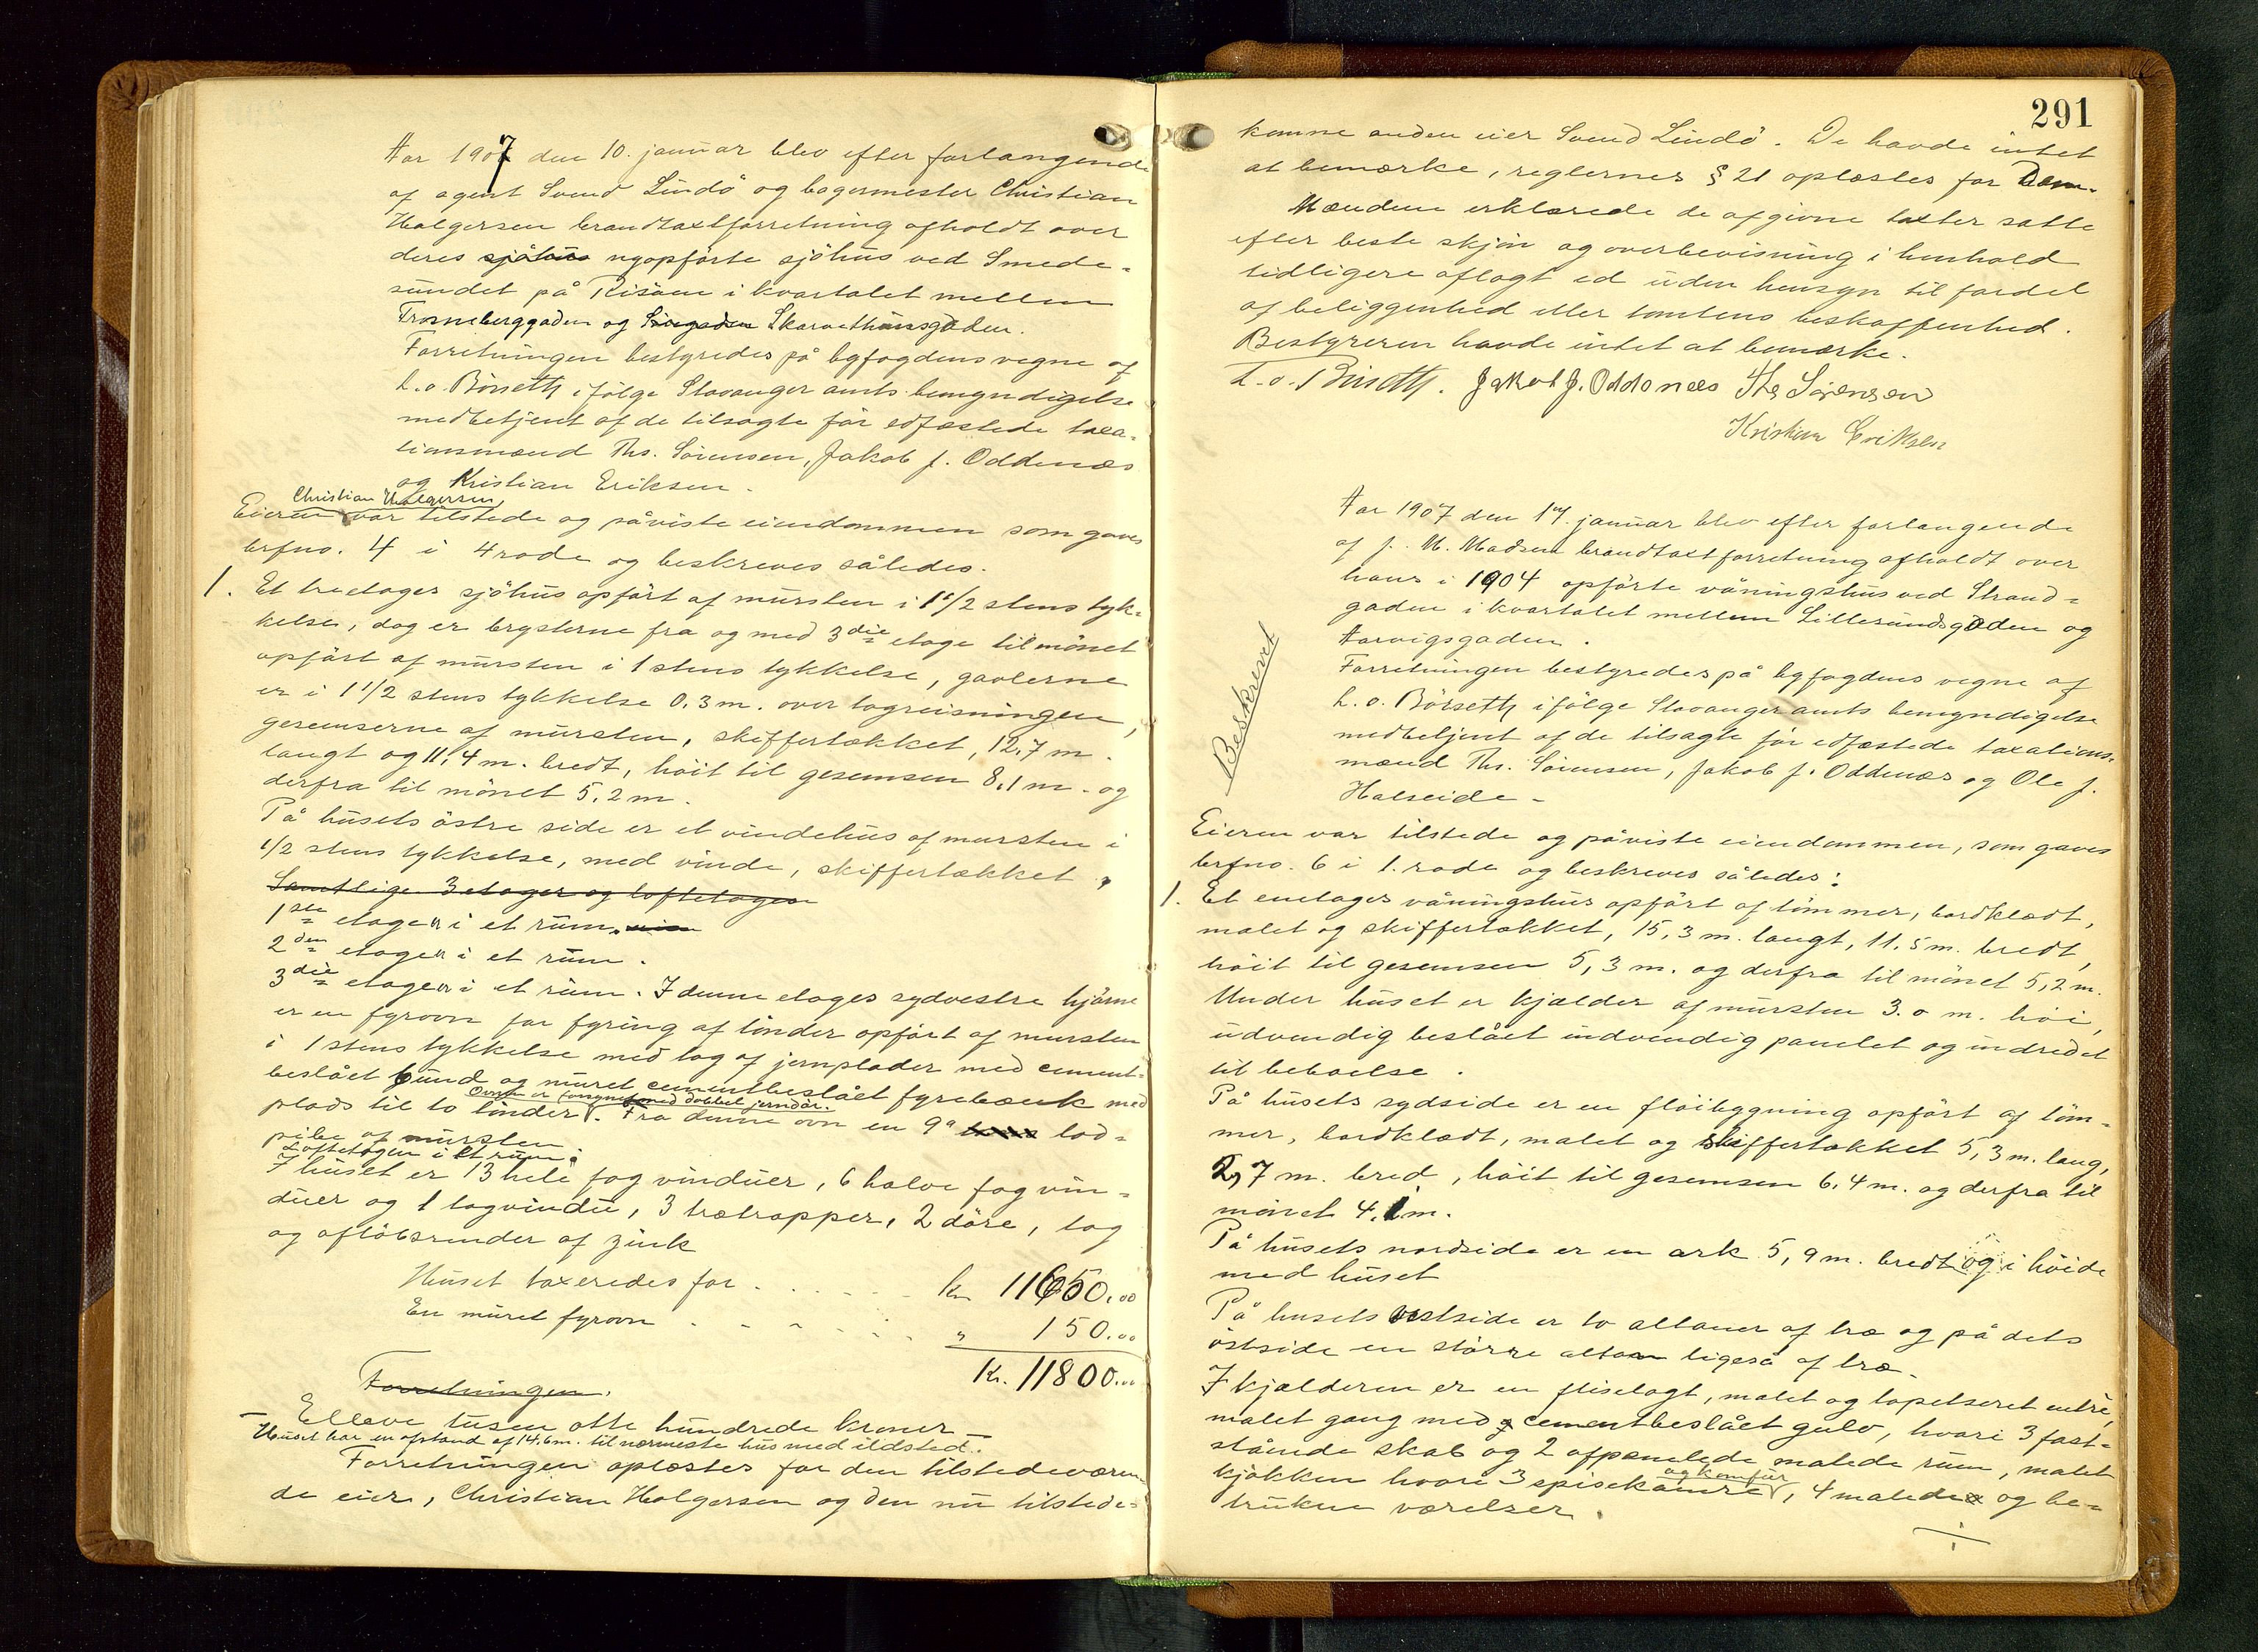 Aar 1907 den 10. januar blev efter forlangende
af agent Svend Lindö og bagermester Christian
Holgersen brandtaxtforretning afholdt over
deres sjöhus nyopförte sjöhus ved Smede-
sundet på Risöen i kvartalet mellem
Tronneberggaden og Skarvethunsgaden.
Forretningen bestyredes på byfogdens vegne af
L. o. Börseth ifölge Stavanger amts bemyndigelse
medbetjent af de tilsagte för edfæstede taxa-
tionsmænd Ths. Sörensen, Jakob J. Oddenæs
og Kristian Eriksen.
Christian Holgersen
Eieren var tilstede og påviste eiendommen som gaves
brfno. 4 i 4 rode og beskreves således.
1. Et treetages sjöhus opfört af mursten i 1 1/2 stens tyk-
kelse, dog er brysterne fra og med 3die etage til mönet
opfört af mursten i 1 stens tykkelse, gavlerne
er i 1 1/2 stens tykkelse 0.3 m. over tagreisningen,
gesemserne af mursten, skiffertækket, 12,7 m.
langt og 11,4 m. bredt, höit til gesemsen 8,1 m. og
derfra til mönet 5.2 m.
På husets östre side er et vindehus af mursten i
1/2 stens tykkelse, med vinde, skiffertækket.
Samtlige 3 etager og loftetagen
1ste etagen i et rum.
2den etagen i et rum.
3die etagen i et rum. I denne etages sydvestre hjörne
er en fyrovn for fyring af tönder opfört af mursten
i 1 stens tykkelse med tag af jernplader med cement-
beslået bund og muret cementbeslået fyrebænk med
Ovnen er forsynet med dobbel jerndör.
plads til to tönder. Fra denne ovn en 9" lod-
pibe af mursten
Loftetagen i et rum.
I huset er 13 hele fag vinduer, 6 halve fag vin-
duer og 1 tagvindu, 3 trætrapper, 2 döre, tag
og aflöbsrender af zink
Huset taxeredes for . . . . . kr 11650.00
En muret fyrovn . . . . . " 150.00
Kr. 11800.00
Forretningen.
Elleve tusen otte hundrede kroner
Huset har en afstand af 14.6 m. til nærmeste hus med ildsted.
Forretningen oplæstes for den tilstedeværen-
de eier, Christian Holgersen og den nu tilstede-
291
komne anden eier Svend Lindö. De havde intet
at bemærke, reglernes § 21 oplæstes for Dem.
Mændene erklærede de afgivne taxter satte
efter beste skjön og overbevisning i henhold
tidligere aflagt ed uden hensyn til fordel
af beliggenhed eller tomtens beskaffenhed.
Bestyreren havde intet at bemærke.
L. o. Börseth. Jakob J. Oddenæs Ths Sörensen
Kristian Eriksen
Beskrevet
Aar 1907 den 17. januar blev efter forlangende
af J. M. Madsen brandtaxtforretning afholdt over
hans i 1904 opförte våningshus ved Strand-
gaden i kvartalet mellem Lillesundsgaden og
Aarvigsgaden.
Forretningen bestyredes på byfogdens vegne af
L. o. Börseth ifölge Stavanger amts bemyndigelse
medbetjent af de tilsagte för edfæstede taxations-
mænd Ths. Sörensen, Jakob J. Oddenæs og Ole J.
Halseide.
Eieren var tilstede og påviste eiendommen, som gaves
brfno. 6 i 1. rode og beskreves således:
1. Et enetages våningshus opfört af tömmer, bordklædt,
malet og skiffertækket, 15,3 m. langt, 11.5 m. bredt,
höit til gesemsen 5,3 m. og derfra til mönet 5,2 m.
Under huset er kjælder af mursten 3.0 m. höi,
udvendig beslået indvendig panelet og indredet
til beboelse.
På husets sydside er en flöibygning opfört af töm-
mer, bordklædt, malet og skiffertækket 5,3 m. lang,
2,7 m. bred, höit til gesemsen 6.4 m. og derfra til
mönet 4.1 m.
På husets nordside er en ark 5,9 m. bredt og i höide
med huset
På husets vestside er to altaner af træ og på dets
östside en större altan ligeså af træ.
I kjælderen er en fliselagt, malet og tapetseret entré,
malet gang med cementbeslået gulv, hvori 3 fast-
stående skab og 2 afpanelede malede rum, malet
og komfur
kjökken hvori 3 spisekamre, 4 malede og be-
trukne værelser.